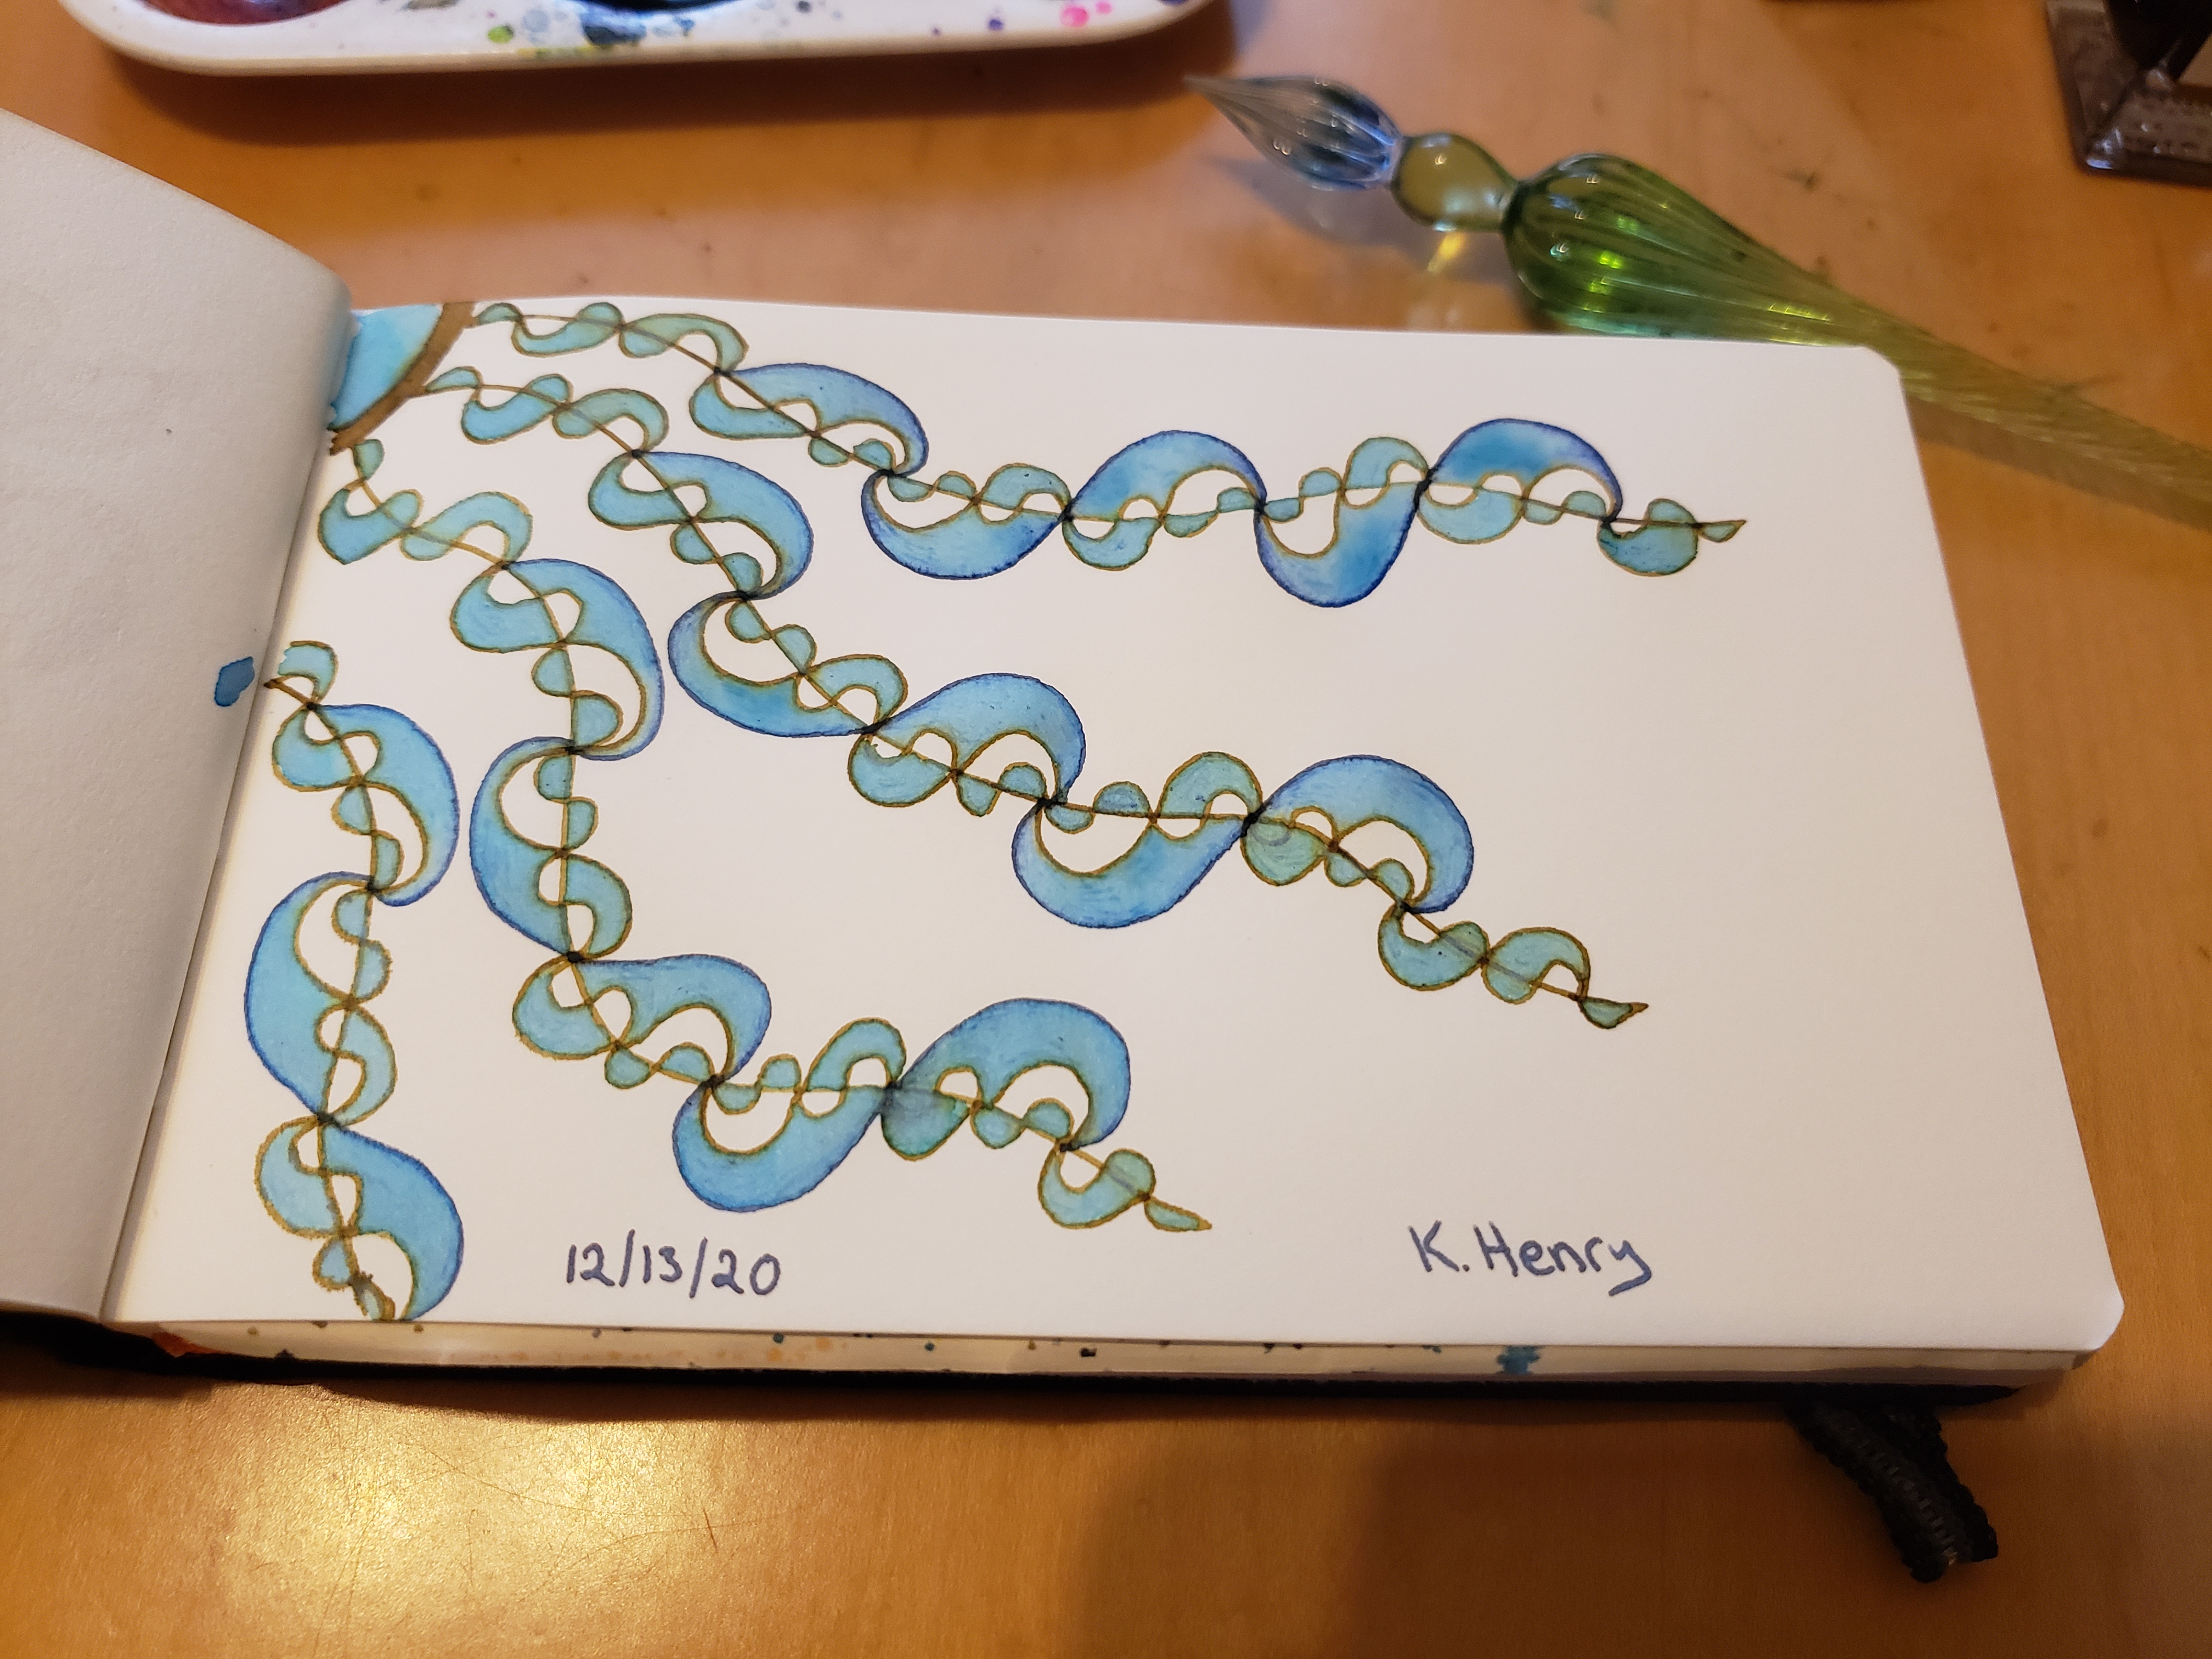 12/13/20
K. Henry